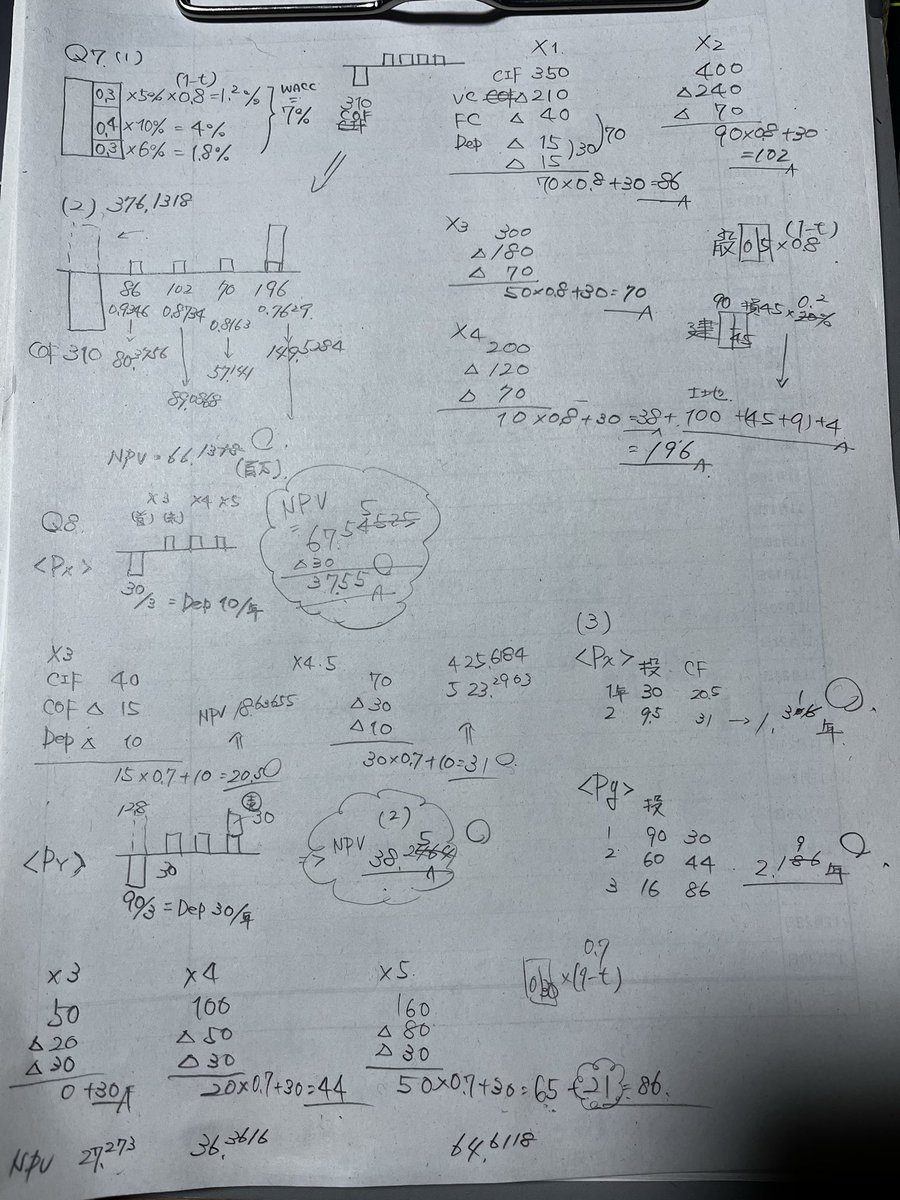 Q7 (1)
(1-t)
0.3 ×5% ×0.8=1.2%
0.4 ×10% = 4%
0.3 ×6% = 1.8%
WACC
=
7%
310
COF
X1
CIF 350
VC COF △ 210
FC △ 40
Dep △ 15
△ 15
)30
)70
70×0.8+30=86
X2
400
△240
△ 70
90×0.8+30
=102
(2) 376.1318
86 102 70 196
0.9346 0.8734 0.8163 0.7629
COF 310
80.3756
89.0868
57.141
149.5284
NPV = 66.1318
(百万)
X3
300
△180
△ 70
50×0.8+30=70
X4
200
△120
△ 70
10×0.8+30=38+
土地
100 +(45+9)+4
=196
設 0 5 ×0.8
(1-t)
90
建 45
損45×
0.2
20%
Q8
X3 X4 X5
(首) (末)
<Px>
30/3 = Dep 10/年
NPV
= 67.54525
5
△30
37.55
X3
CIF 40
COF △ 15
Dep △ 10
15×0.7+10=20.5
NPV 18.63655
X4.5
70
△30
△10
30×0.7+10=31
425.684
523.2903
(3)
<Px> 投 CF
1年 30 20.5
2 9.5 31 → 1.306
1
年
<Py>
投
1 90 30
2 60 44
3 16 86
2.186
9
年
128
<Py>
30
30
90/3 = Dep 30/年
(2)
NPV
38.2464
5
X3
50
△20
△30
0+30
X4
100
△ 50
△ 30
20×0.7+30=44
X5
160
△ 80
△ 30
50×0.7+30=65+21=86
0.7
0 30 ×(1-t)
NPV 27.273
36.3616
64.6118